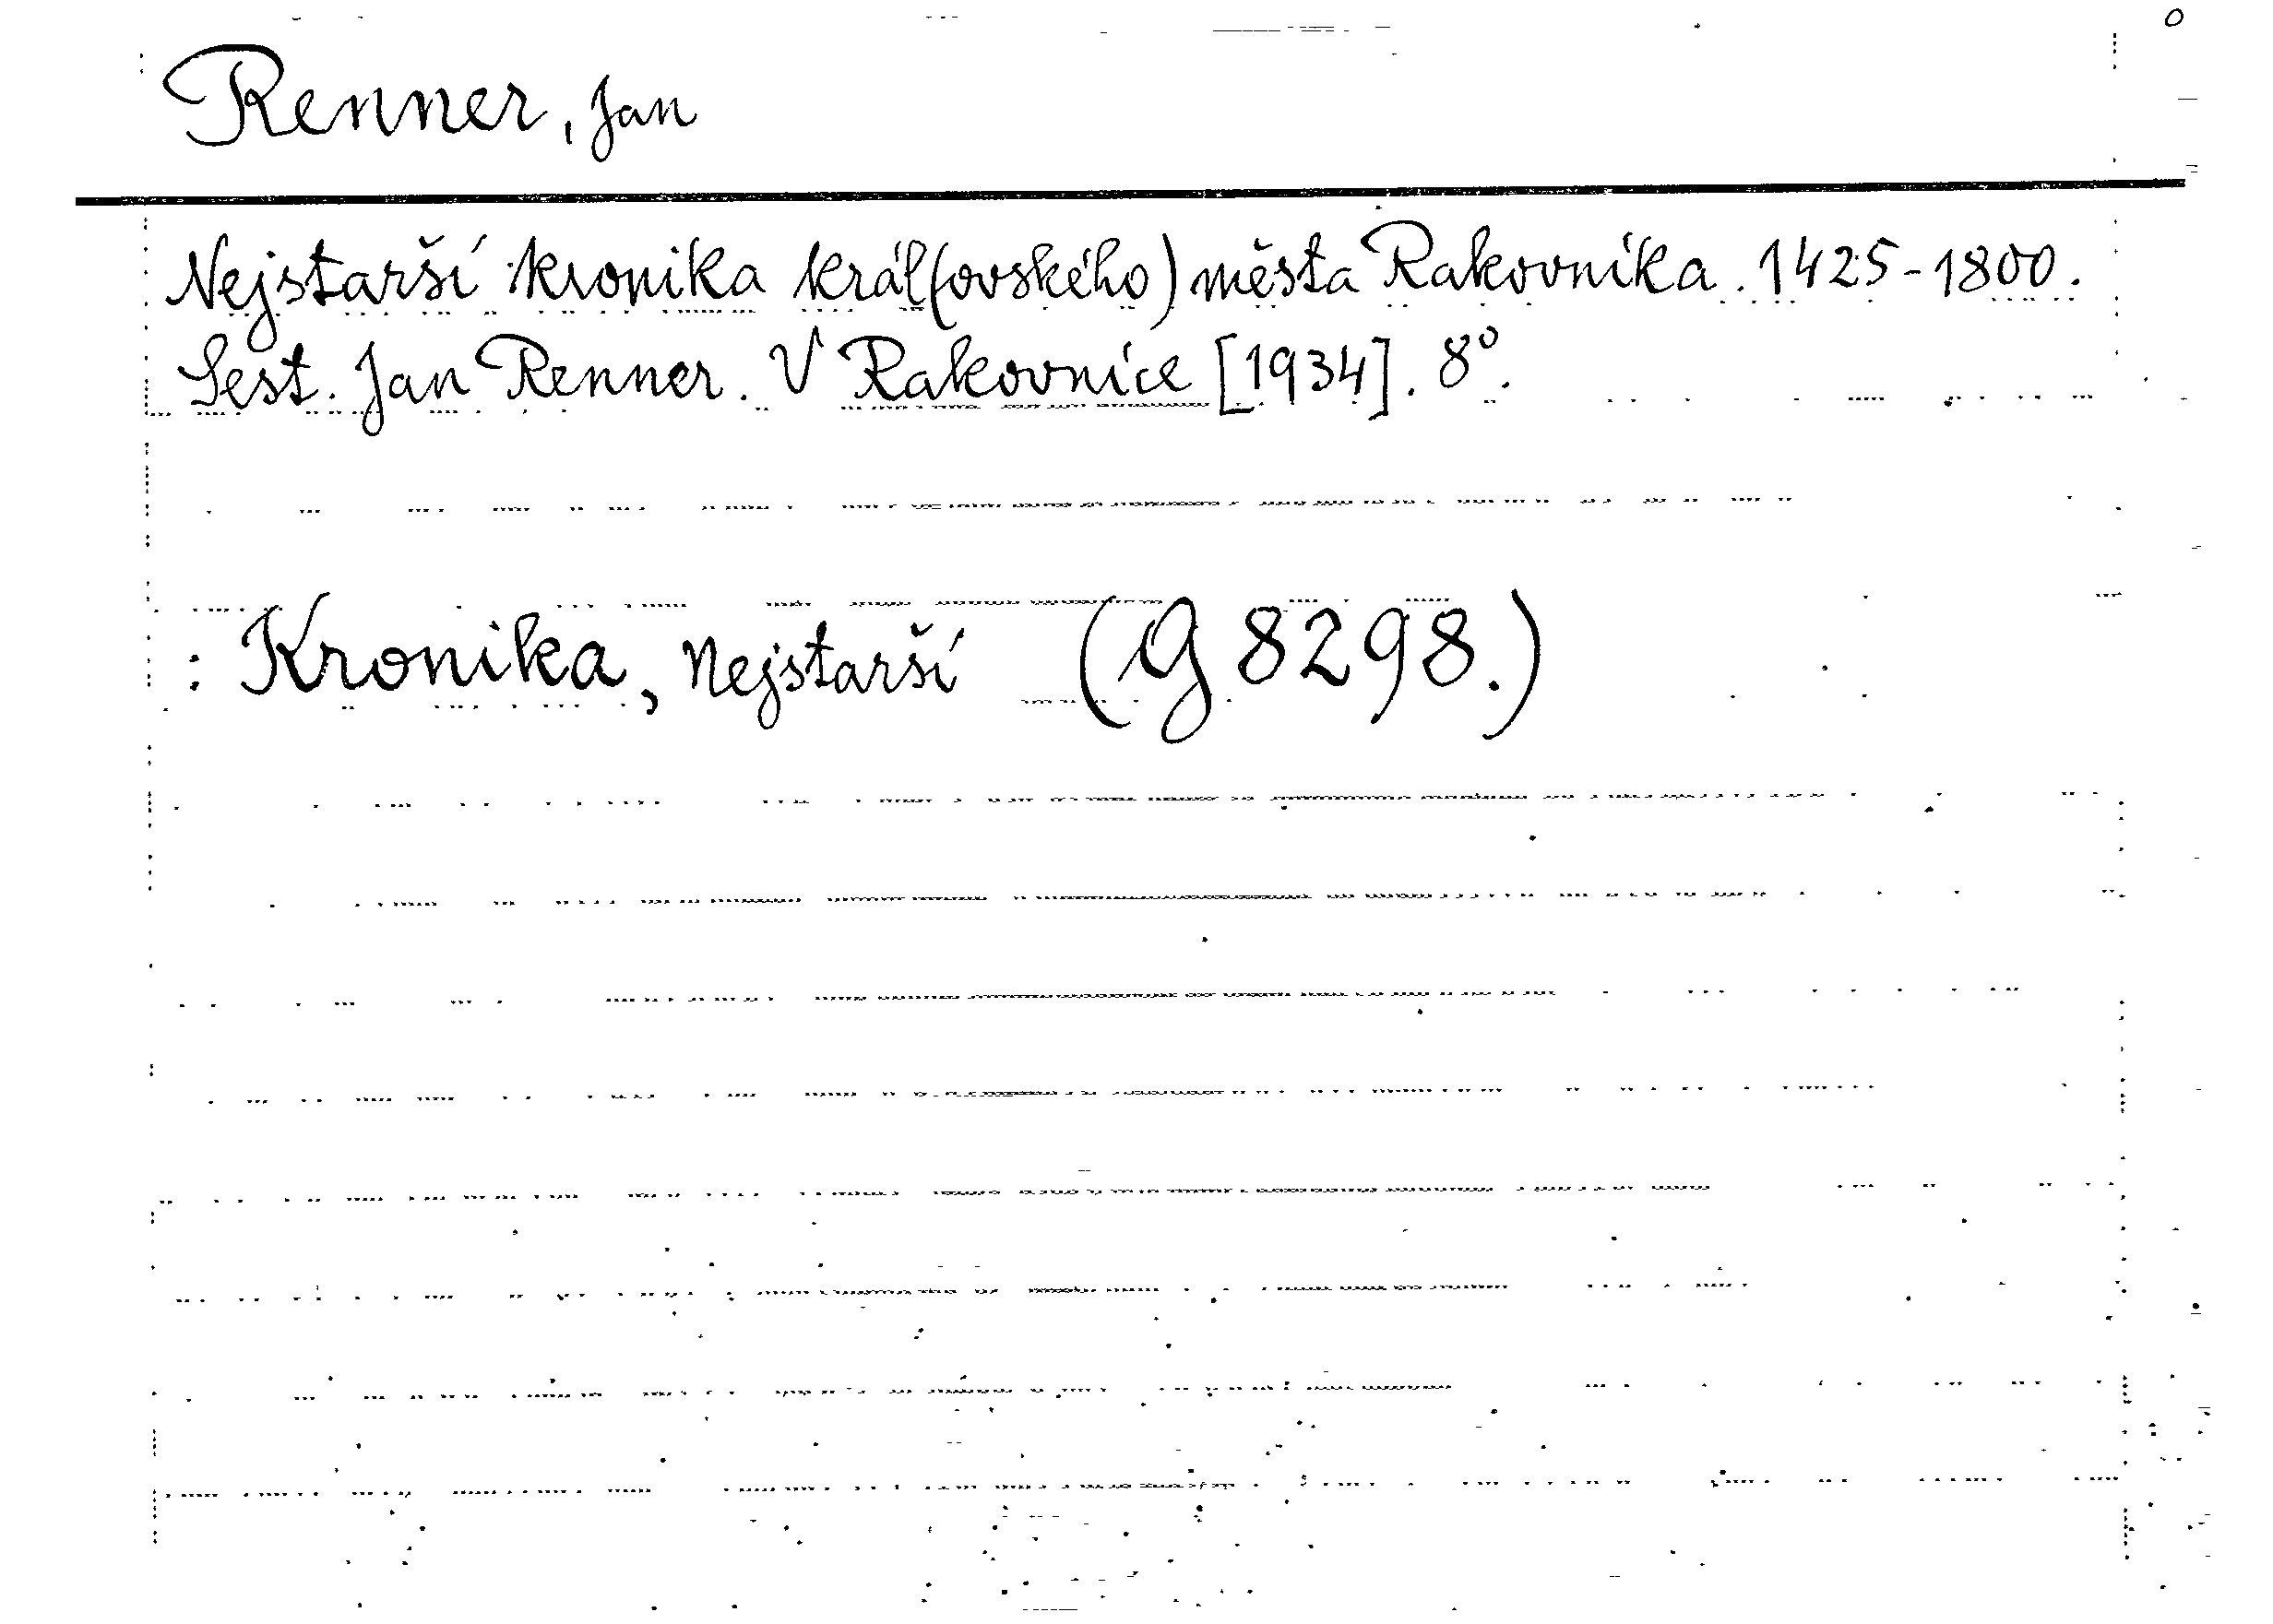 Renner, Jan
Nejstarší kronika král(ovského) města Rakovníka. 1425-1800.
Sest. Jan Renner. V Rakovníce [1934]. 8°.
: Kronika, Nejstarší (G 8298.)